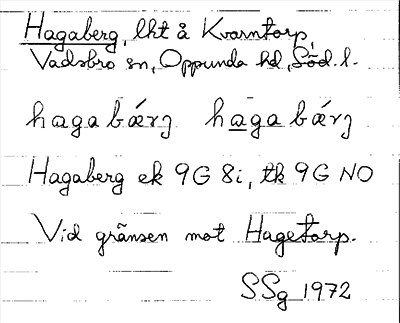 Hagaberg, lht å Kvarntorp,
Vadsbro sn, Oppunda hd, Söd. l.
hagabǽrj hagabǽrj
Hagaberg ek 9G 8i, tk 9G NO
Vid gränsen mot Hagetorp.
SSg 1972